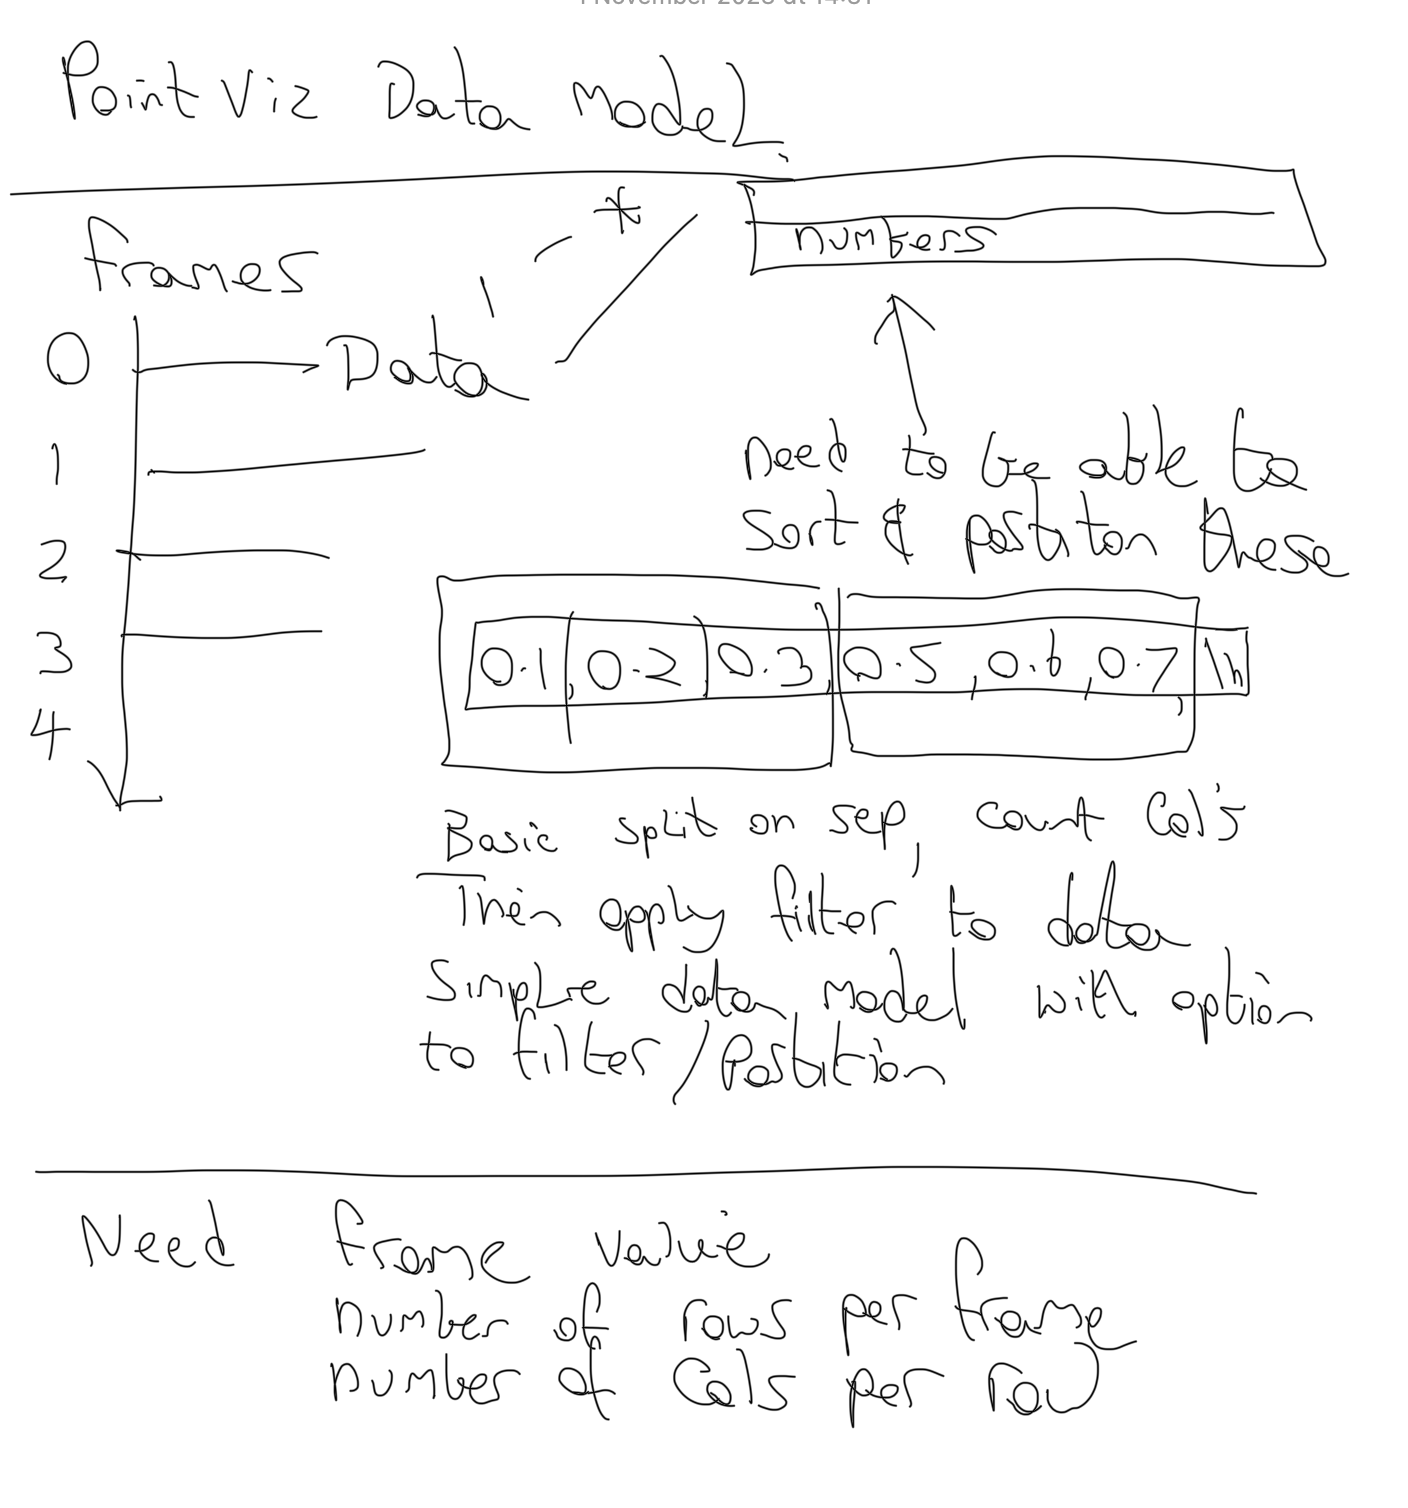 Point Viz Data Model.
frames
*
numbers
1
0
Data
1
2
3
4
need to be able to
sort & position these
0.1, 0.2 0.3, 0.5, 0.6, 0.7, \n
Basic split on sep, count Col's
Then apply filter to data
Simple data model with option
to filter / Position
Need frame value
number of rows per frame
number of Cols per row